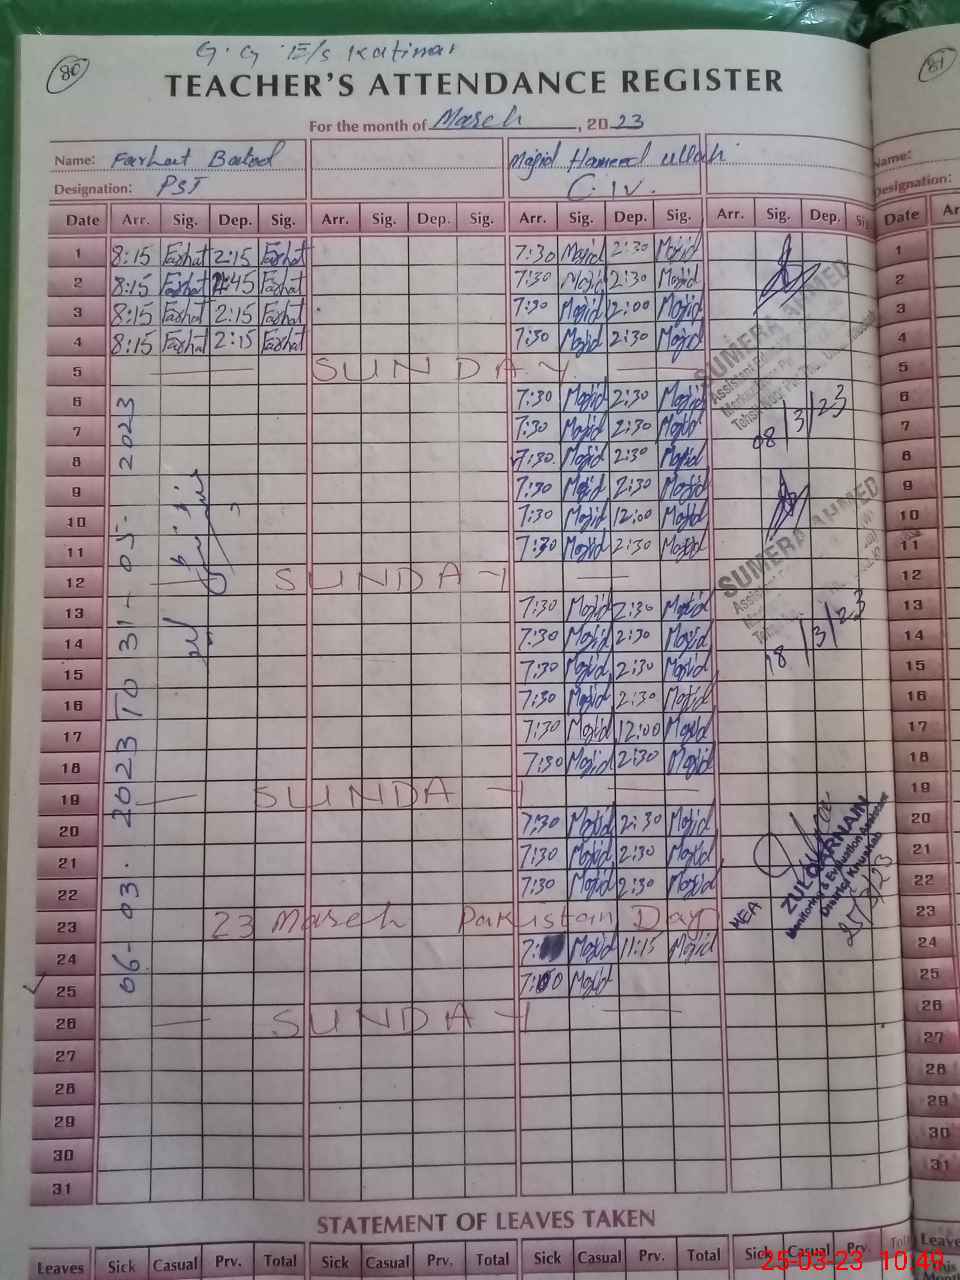 80
G.G E/s Katimar
81
TEACHER'S ATTENDANCE REGISTER
For the month of March, 2023
Name: Farhat Batool Majid Hameed ullah Name:
Designation: PST C.IV. Designation:
Date Arr. Sig. Dep. Sig. Arr. Sig. Dep. Sig. Arr. Sig. Dep. Sig. Arr. Sig. Dep. Date
1 8:15 Farhat 2:15 Farhat 7:30 Majid 2:30 Majid 1
2 8:15 Farhat 45 Farhat 7:30 Majid 2:30 Majid 2
3 8:15 Farhat 2:15 Farhat 7:30 Majid 12:00 Majid 3
4 8:15 Farhat 2:15 Farhat 7:30 Majid 2:30 Majid 4
5 — SUNDAY — 5
6 7:30 Majid 2:30 Majid 6
7 7:30 Majid 2:30 Majid 7
8 7:30 Majid 2:30 Majid 8
9 7:30 Majid 2:30 Majid 9
10 7:30 Majid 12:00 Majid 10
11 7:30 Majid 2:30 Majid 11
12 — SUNDAY — 12
13 7:30 Majid 2:30 Majid 13
14 7:30 Majid 2:30 Majid 14
15 7:30 Majid 2:30 Majid 15
16 7:30 Majid 2:30 Majid 16
17 7:30 Majid 12:00 Majid 17
18 7:30 Majid 2:30 Majid 18
19 — SUNDAY — 19
20 7:30 Majid 2:30 Majid 20
21 7:30 Majid 2:30 Majid 21
22 7:30 Majid 2:30 Majid 22
23 23 March Pakistan Day 23
24 7: Majid 11:15 Majid 24
25 Majid 25
26 — SUNDAY — 26
27 27
28 28
29 29
30 30
31 31
06-03-2023 TO 31-05-2023
SUMERA AHMED
08/3/23
SUMERA AHMED
18/3/23
MEA
ZULQARNAIN
Monitoring & Evaluation Assistant
District Khushab
25/3/23
STATEMENT OF LEAVES TAKEN
Leaves Sick Casual Prv. Total Sick Casual Prv. Total Sick Casual Prv. Total Sick Casual Prv. Total Leave
25-03-23 10:49